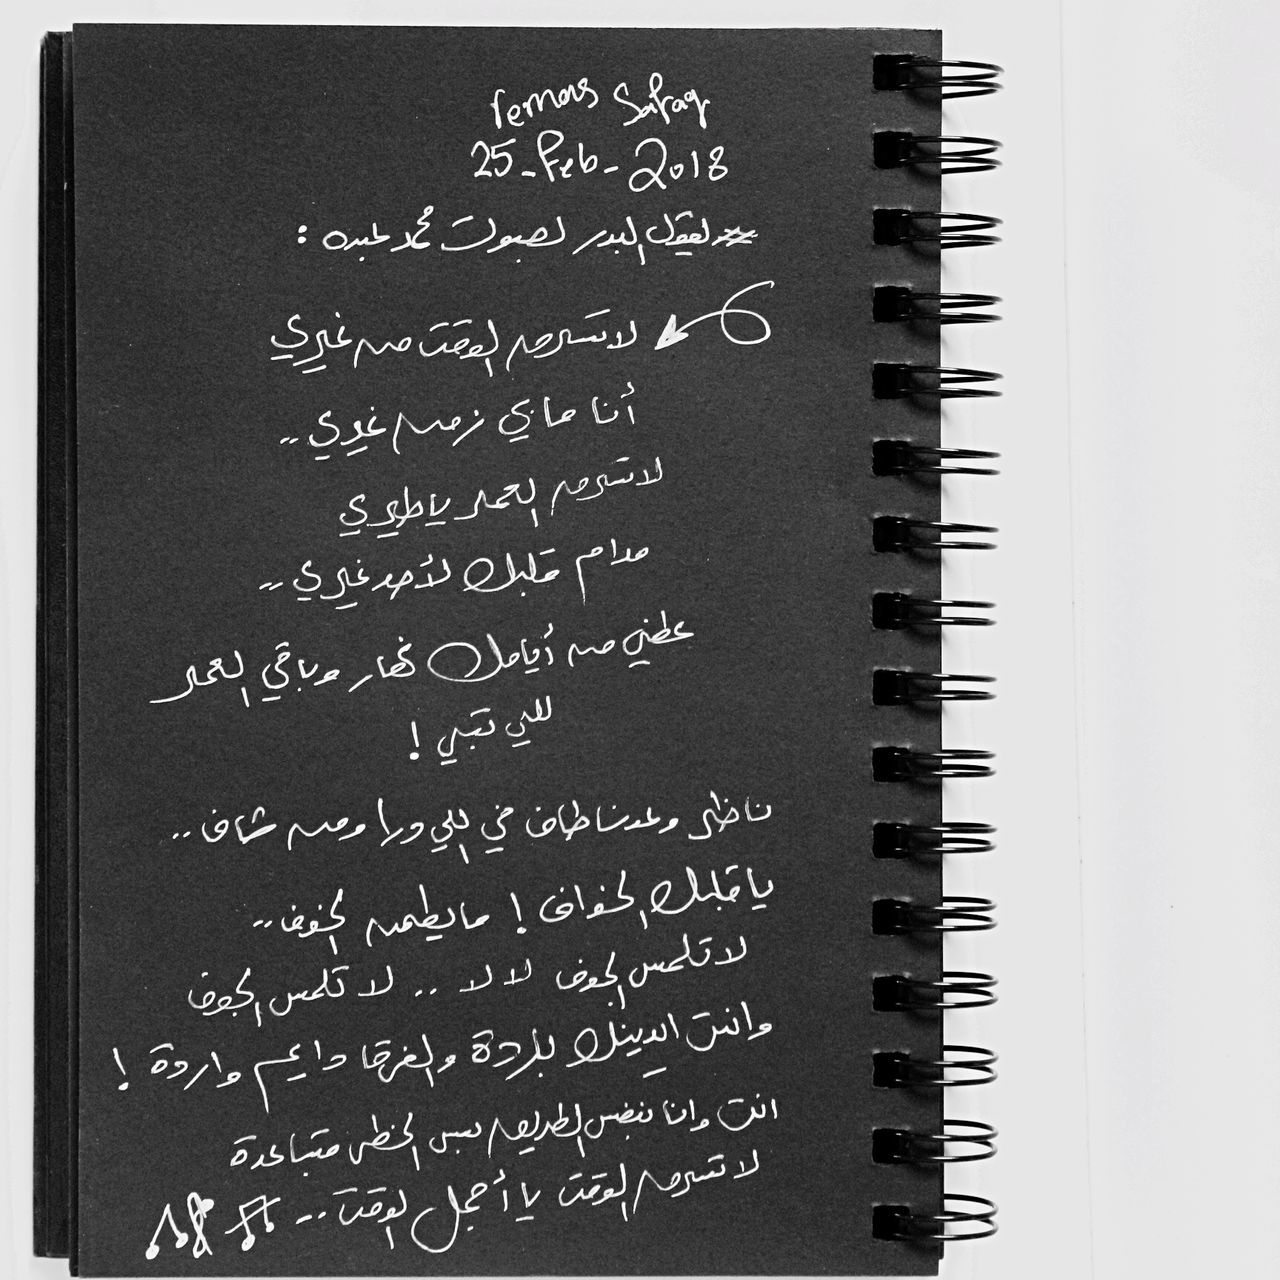 remas Safaq
25-Feb-2018
يقول البدر لصوت محمد عبده :
لا تسرق الوقت من غيري
أنا مابي زمن غيري ..
لا تسرق العمر يا طيري
مدام قلبك لأحد غيري ..
عطني من أيامك نهار وباقي العمر
للي تبي !
ناظر وعدنا طاف في اللي ورا ومن شاف ..
يا قلبك الخواف ! ما يطمن الخوف ..
لا تلمس الجوف لا لا .. لا تلمس الجوف
وانت ايدينك باردة والفرقا دايم واردة !
انت وانا بنفس الطريق بس الخطى متباعدة
لا تسرق الوقت يا أجمل الوقت ..